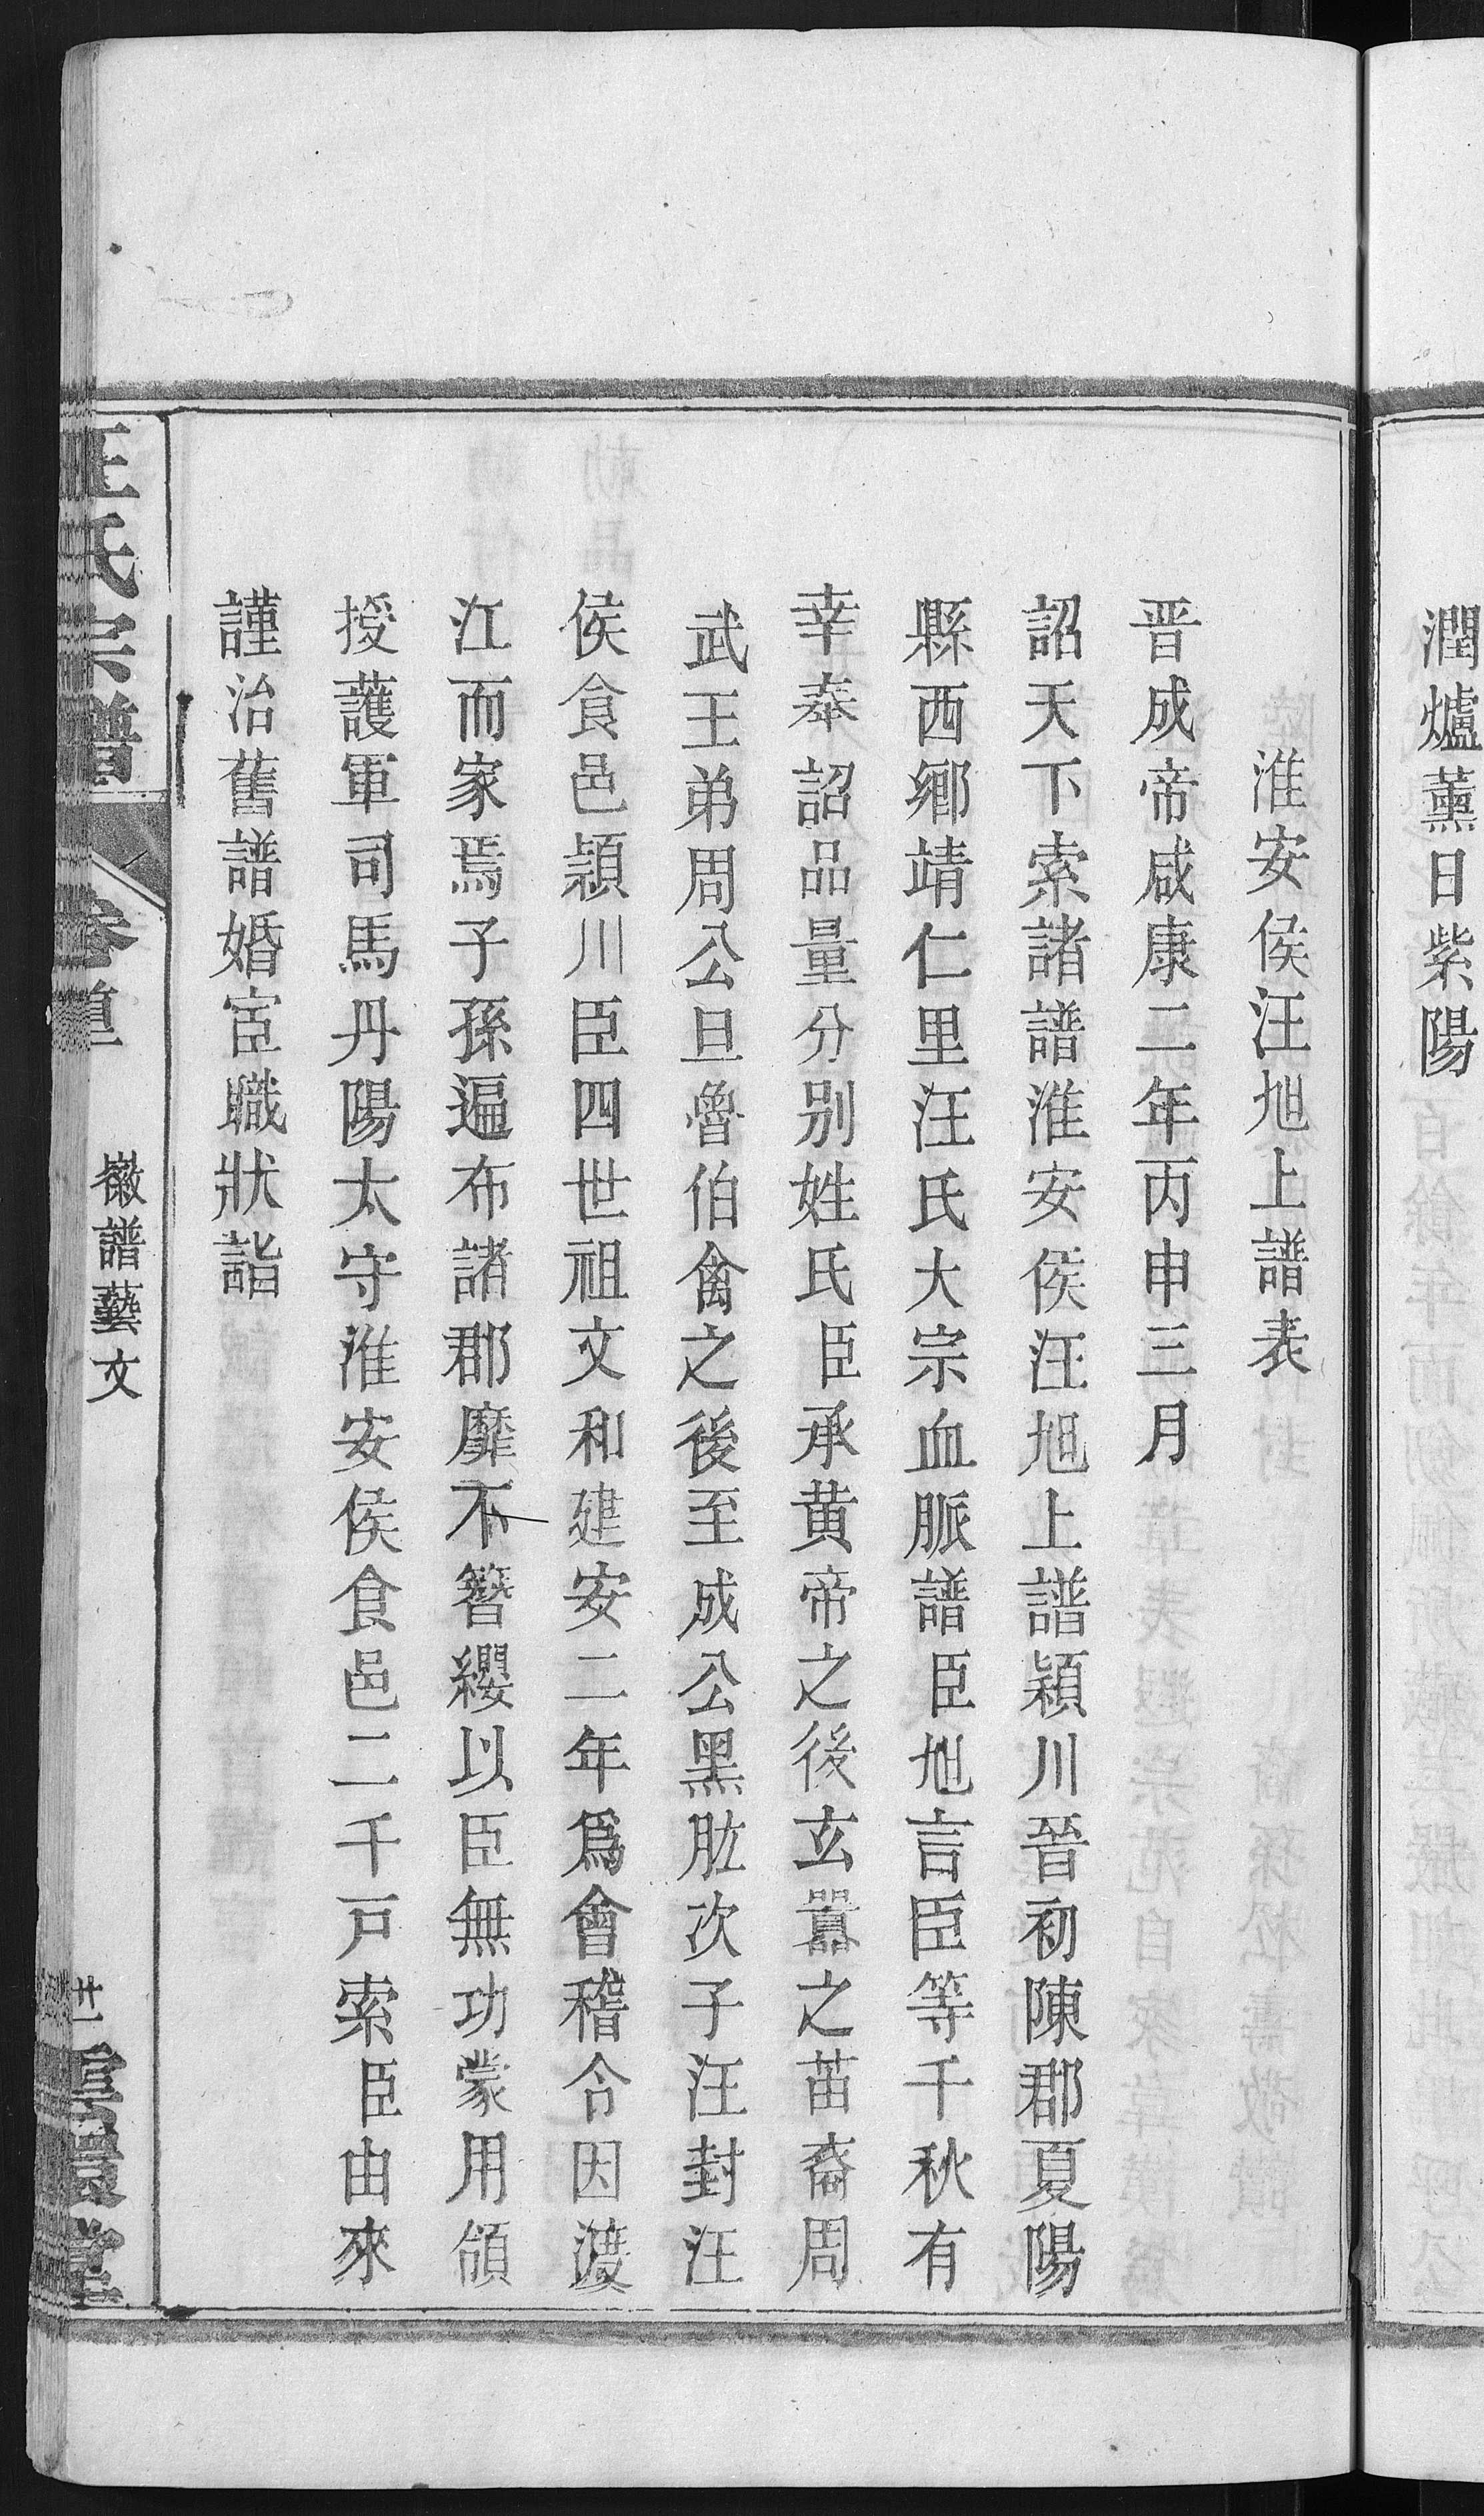 潤爐薰日紫陽
淮安侯汪旭上譜表
晋成帝咸康二年丙申三月
詔天下索諸譜淮安侯汪旭上譜潁川晉初陳郡夏陽
縣西鄉靖仁里汪氏大宗血脈譜臣旭言臣等千秋有
幸奉詔品量分別姓氏臣承黄帝之後玄囂之苗裔周
武王弟周公旦魯伯禽之後至成公黑肱次子汪封汪
侯食邑潁川臣四世祖文和建安二年爲會稽令因渡
江而家焉子孫遍布諸郡靡不簪纓以臣無功蒙用領
授護軍司馬丹陽太守淮安侯食邑二千戸索臣由來
謹治舊譜婚宦職狀詣
汪氏宗譜
徽譜藝文
廿一